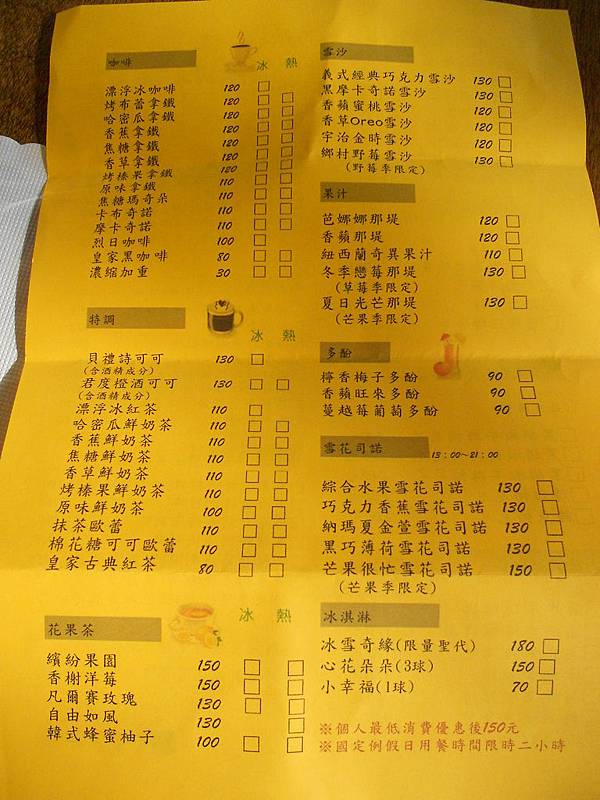 咖啡
冰 熱
漂浮冰咖啡 120
烤布蕾拿鐵 120
哈密瓜拿鐵 120
香蕉拿鐵 120
焦糖拿鐵 120
香草拿鐵 120
烤榛果拿鐵 120
原味拿鐵 110
焦糖瑪奇朵 110
卡布奇諾 110
摩卡奇諾 110
烈日咖啡 100
皇家黑咖啡 80
濃縮加重 30
特調
冰 熱
貝禮詩可可 130
(含酒精成分)
君度橙酒可可 130
(含酒精成分)
漂浮冰紅茶 110
哈密瓜鮮奶茶 110
香蕉鮮奶茶 110
焦糖鮮奶茶 110
香草鮮奶茶 110
烤榛果鮮奶茶 110
原味鮮奶茶 100
抹茶歐蕾 110
棉花糖可可歐蕾 110
皇家古典紅茶 80
花果茶
冰 熱
繽紛果園 150
香榭洋莓 150
凡爾賽玫瑰 130
自由如風 130
韓式蜂蜜柚子 100
雪沙
義式經典巧克力雪沙 130
黑摩卡奇諾雪沙 130
香蘋蜜桃雪沙 120
香草Oreo雪沙 120
宇治金時雪沙 120
鄉村野莓雪沙 130
(野莓季限定)
果汁
芭娜娜那堤 120
香蘋那堤 120
紐西蘭奇異果汁 110
冬季戀莓那堤 130
(草莓季限定)
夏日光芒那堤 130
(芒果季限定)
多酚
檸香梅子多酚 90
香蘋旺來多酚 90
蔓越莓葡萄多酚 90
雪花司諾 13:00~21:00
綜合水果雪花司諾 130
巧克力香蕉雪花司諾 130
納瑪夏金萱雪花司諾 130
黑巧薄荷雪花司諾 130
芒果很忙雪花司諾 150
(芒果季限定)
冰淇淋
冰雪奇緣(限量聖代) 180
心花朵朵(3球) 150
小幸福(1球) 70
※個人最低消費優惠後150元
※國定例假日用餐時間限時二小時